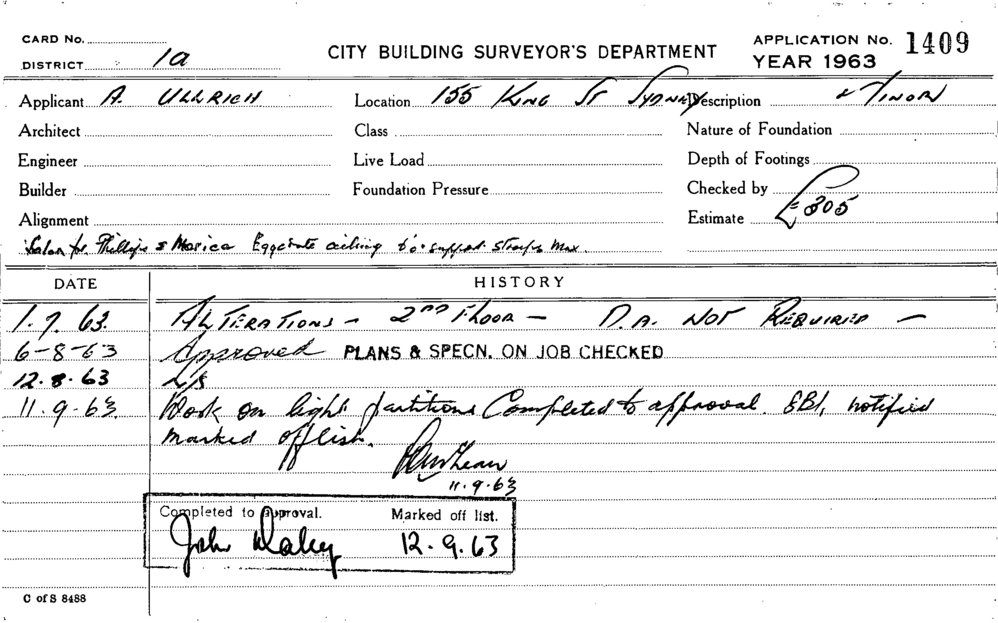 CARD No.
DISTRICT 1a
CITY BUILDING SURVEYOR'S DEPARTMENT
APPLICATION No. 1409
YEAR 1963
Applicant A. ULLRICH Location 155 KING ST SYDNEY Description MINOR
Architect Class Nature of Foundation
Engineer Live Load Depth of Footings
Builder Foundation Pressure Checked by
Alignment Estimate £305
Salon for Phillips & Marica Eggcrate ceiling 6'0" support straps max.
DATE HISTORY
1.7.63. ALTERATIONS - 2ND FLOOR - D.A. NOT REQUIRED -
6-8-63 Approved PLANS & SPECN. ON JOB CHECKED
12.8.63 L/S
11.9.63 Work on light partitions Completed to approval. SBI, notified
marked off list.
11.9.63
Completed to approval. Marked off list.
John Daley 12.9.63
C of S 8488